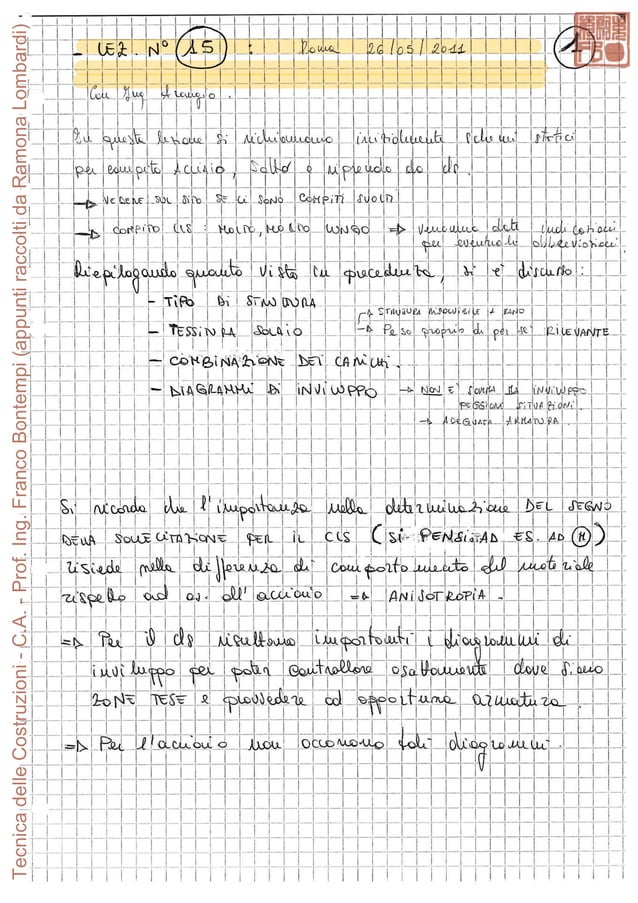 Tecnica delle Costruzioni - C.A. - Prof. Ing. Franco Bontempi (appunti raccolti da Ramona Lombardi)
- LEZ. N° 15 : Roma 26/05/2011
1
Con Ing Arangio.
In questa lezione si richiamano inizialmente schemi statici
per compito Acciaio, Salto e riprendo da cls.
→ VEDERE SUL SITO SE CI SONO COMPITI SVOLTI
→ COMPITO CLS : MOLTO, MOLTO LUNGO ⇒ verranno date indicazioni
per eventuali abbreviazioni.
Riepilogando quanto visto in precedenza, si è discusso:
- TIPO DI STRUTTURA
→ STRUTTURA RISOLVIBILE A MANO
- TESSITURA SOLAIO → Peso proprio di per sé RILEVANTE
- COMBINAZIONE DEI CARICHI.
- DIAGRAMMI DI INVILUPPO → NON È SOMMA MA INVILUPPO
PEGGIORI SITUAZIONI.
→ ADEGUATA ARMATURA.
Si ricorda che l'importanza nella determinazione DEL SEGNO
DELLA SOLLECITAZIONE PER IL CLS (SI PENSI AD ES. AD M)
risiede nella differenza di comportamento del materiale
rispetto ad es. all'acciaio ⇒ ANISOTROPIA.
⇒ Per il cls risultano importanti i diagrammi di
inviluppo per poter controllare esattamente dove siano
ZONE TESE e provvedere ad opportuna armatura.
⇒ Per l'acciaio non occorrono tali diagrammi.